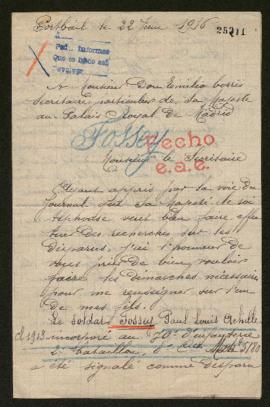 Portbail le 22 Juin 1916
25211
Ped. Informes
Que se hace así
A Monsieur Don Emilio Torrès
Secrétaire particulier de Sa Majesté
au Palais Royal de Madrid
Fossey
Hecho
e.a.e.
Monsieur le Secrétaire
Ayant appris par la voie du
Journal que Sa Majesté le roi
Alphonse veut bien faire effec
tuer des recherches sur les
disparus, j'ai l'honneur de
vous prier de bien vouloir
faire les démarches nécessaires
pour me renseigner sur l'un
de mes fils.
Le soldat Fossey Paul Louis Achille
Cl 1913 incorporé au 70e d'infanterie
2e bataillon,
a été signalé comme disparu